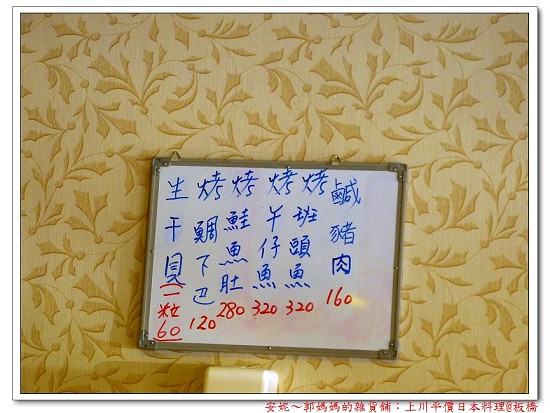 生干貝(一粒)60
烤鯛下巴120
烤鮭魚肚280
烤午仔魚320
烤班頭魚320
鹹豬肉160
安妮～郭媽媽的雜貨舖：上川平價日本料理@板橋